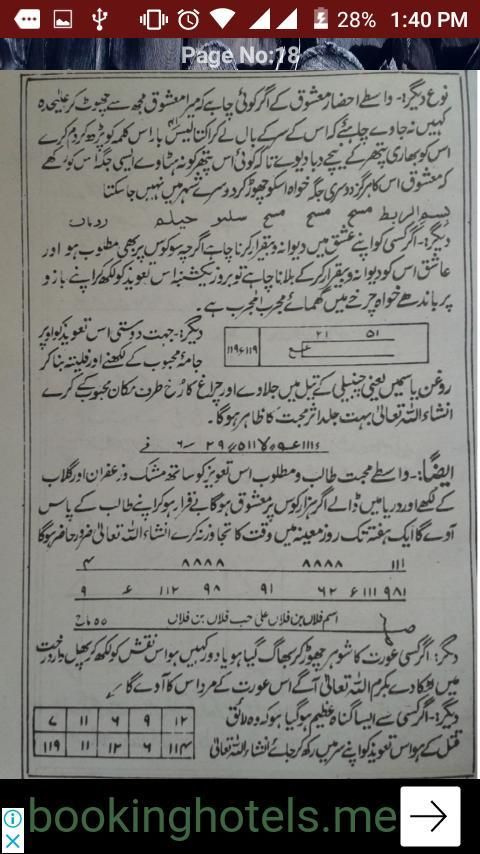 28% 1:40 PM
Page No:18
نوع دیگر:- واسطے احضار معشوق کے اگر کوئی چاہے کہ میرا معشوق مجھ سے چھوٹ کر علیٰحدہ
کہیں نہ جاوے چاہئے کہ اس کے سر کے بال لے کر اکتالیس بار اس کلمہ کو پڑھ کر دم کرے
اس کو بھاری پتھر کے نیچے دبا دیوے تاکہ کوئی اس پتھر کو نہ ہٹاوے ایسی جگہ اس کو رکھے
کہ معشوق اس کا ہرگز دوسری جگہ خواہ اسکو چھوڑ کر دوسرے شہر میں نہیں جا سکتا
مسح مسح مسح
دیگر:- اگر کسی کو اپنے عشق میں دیوانہ و بیقرار کرنا چاہے اگرچہ سو کوس پر بھی مطلوب ہو اور
عاشق اس کو دیوانہ و بیقرار کر کے بلانا چاہے تو بروز یکشنبہ اس تعویذ کو لکھ اپنے بازو
پر باندھے خواہ چرخے میں گھمائے مجرب المجرب ہے۔
۲۱ ۵۱
۱۱۹ ۶ ۱۱۹
دیگر:- جہت دوستی اس تعویذ کو اوپر
جامۂ محبوب کے لکھے اور فلیتہ بنا کر
روغن یاسمین یعنی چنبیلی کے تیل میں جلاوے اور چراغ کا رُخ طرف مکان محبوب کے کرے
انشاء اللہ تعالیٰ بہت جلد اثر محبت کا ظاہر ہوگا۔
ایضاً:- واسطے محبت طالب و مطلوب اس تعویذ کو ساتھ مشک و زعفران اور گلاب
کے لکھے اور دریا میں ڈالے اگر ہزار کوس پر معشوق ہوگا بے قرار ہو کر اپنے طالب کے پاس
آوے گا ایک ہفتہ تک روز معینہ میں وقت کا تجاوز نہ کرے انشاء اللہ تعالیٰ ضرور حاضر ہوگا
۱۱۱ ۸۸۸۸ ۸۸۸۸ ۴
۹۸۱ ۱۱۱ ۶ ۶۲ ۹۱ ۹۸ ۱۱۲ ۶ ۹
اسم فلاں بن فلاں علیٰ حب فلاں بن فلاں
دیگر:- اگر کسی عورت کا شوہر چھوڑ کر بھاگ گیا ہو یا دور کہیں ہو اس نقش کو لکھ کر پھل دار درخت
میں لٹکا دے بکرم اللہ تعالیٰ آگے اس عورت کے مرد اس کا آوے گا
دیگر:- اگر کسی سے ایسا گناہ عظیم ہو گیا ہو کہ وہ لائق
قتل کے ہو اس تعویذ کو اپنے سر میں رکھ کر جائے انشاء اللہ تعالیٰ
۱۲ ۹ ۶ ۱۱ ۷
۱۱۴ ۶ ۱۲ ۱۱ ۱۱۹
bookinghotels.me